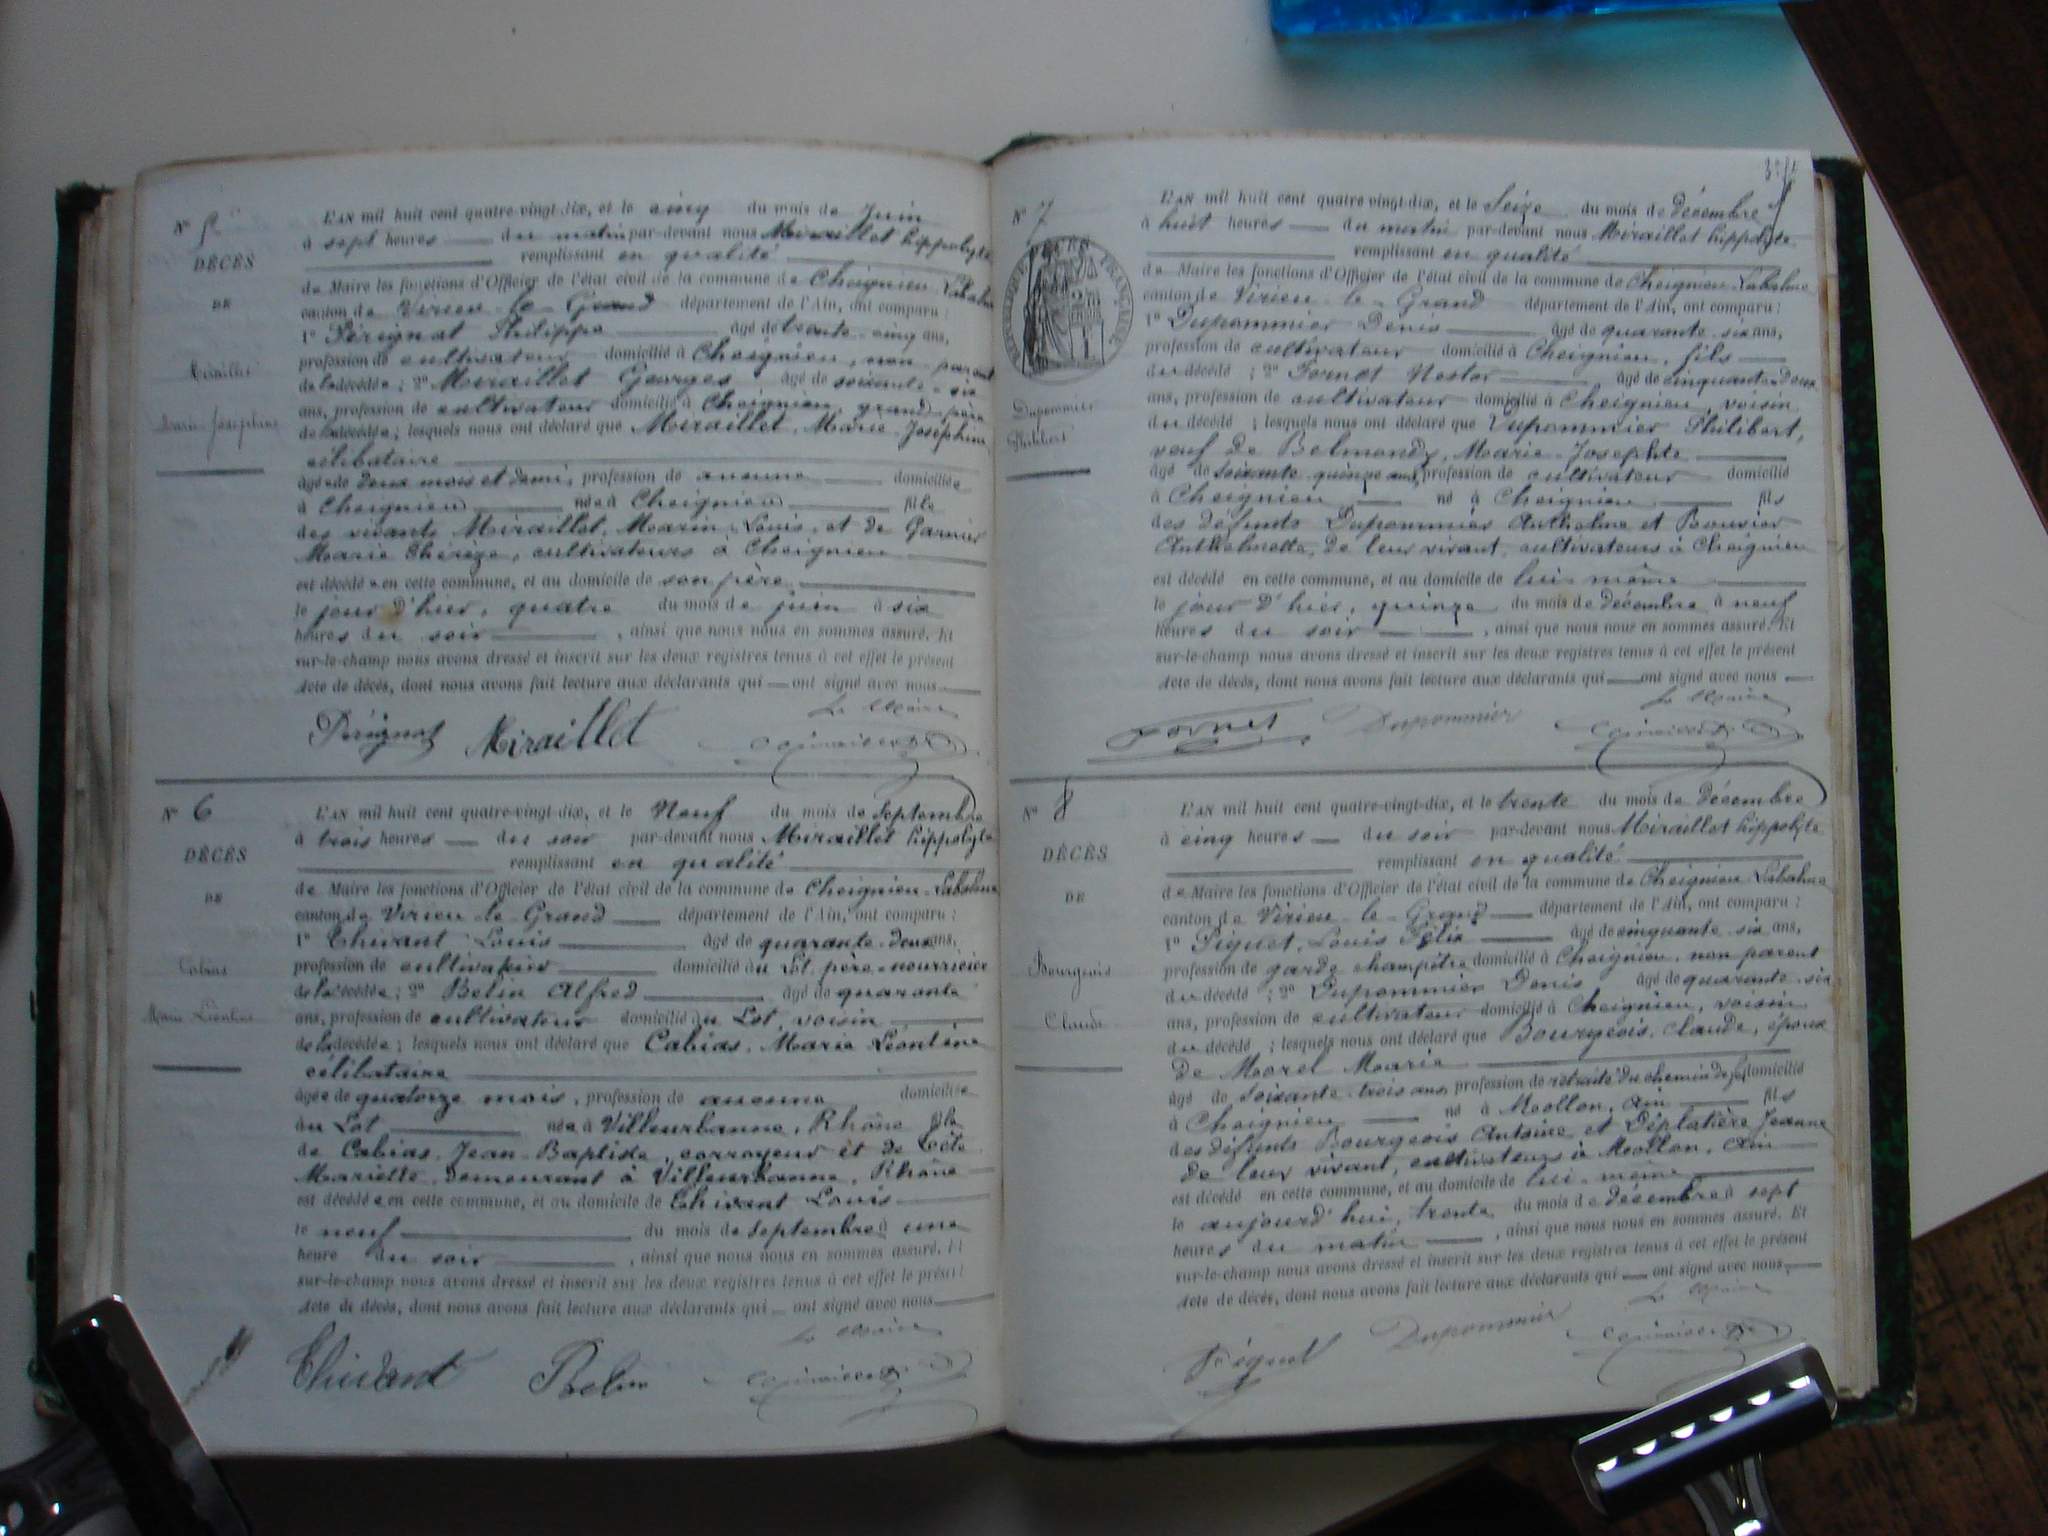 N° 5
DÉCÈS
DE
Miraillet
Marie Joséphine
L'AN mil huit cent quatre-vingt-dix, et le cinq du mois de Juin
à sept heures du matin par-devant nous Miraillet hippolyte
remplissant en qualité
de Maire les fonctions d'Officier de l'état civil de la commune de Cheignieu-Labalme
canton de Virieu-le-Grand département de l'Ain, ont comparu :
1° Pérignat Philippe âgé de trente-cinq ans,
profession de cultivateur domicilié à Cheignieu, non parent
de la décédée ; 2° Miraillet Georges âgé de soixante-six
ans, profession de cultivateur domicilié à Cheignieu, grand-père
de la décédée ; lesquels nous ont déclaré que Miraillet, Marie-Joséphine
célibataire
âgée de deux mois et demi, profession de aucune domiciliée
à Cheignieu née à Cheignieu fille
des vivants Miraillet, Marin-Louis, et de Garnier
Marie Thérèze, cultivateurs à Cheignieu
est décédée en cette commune, et au domicile de son père
le jour d'hier, quatre du mois de juin à six
heures du soir , ainsi que nous nous en sommes assuré. Et
sur-le-champ nous avons dressé et inscrit sur les deux registres tenus à cet effet le présent
Acte de décès, dont nous avons fait lecture aux déclarants qui ont signé avec nous
Le Maire
Pérignat Miraillet
N° 6
DÉCÈS
DE
Cabias
Marie Léontine
L'AN mil huit cent quatre-vingt-dix, et le Neuf du mois de Septembre
à trois heures du soir par-devant nous Miraillet hippolyte
remplissant en qualité
de Maire les fonctions d'Officier de l'état civil de la commune de Cheignieu-Labalme
canton de Virieu-le-Grand département de l'Ain, ont comparu :
1° Thivant Louis âgé de quarante-deux ans,
profession de cultivateur domicilié au Lot, père-nourricier
de la décédée ; 2° Belin Alfred âgé de quarante
ans, profession de cultivateur domicilié au Lot, voisin
de la décédée ; lesquels nous ont déclaré que Cabias, Marie Léontine
célibataire
âgée de quatorze mois, profession de aucune domiciliée
au Lot née à Villeurbanne, Rhône fille
de Cabias, Jean-Baptiste, corroyeur et de Tête
Mariette, demeurant à Villeurbanne, Rhône
est décédée en cette commune, et au domicile de Thivant Louis
le neuf du mois de septembre à une
heure du soir , ainsi que nous nous en sommes assuré. Et
sur-le-champ nous avons dressé et inscrit sur les deux registres tenus à cet effet le présent
Acte de décès, dont nous avons fait lecture aux déclarants qui ont signé avec nous
Le Maire
Thivant Belin
N° 7
RÉPUBLIQUE FRANÇAISE
Dupommier
Philibert
L'AN mil huit cent quatre-vingt-dix, et le Seize du mois de décembre
à huit heures du matin par-devant nous Miraillet hippolyte
remplissant en qualité
de Maire les fonctions d'Officier de l'état civil de la commune de Cheignieu-Labalme
canton de Virieu-le-Grand département de l'Ain, ont comparu :
1° Dupommier Denis âgé de quarante-six ans,
profession de cultivateur domicilié à Cheignieu, fils
du décédé ; 2° Fornet Nestor âgé de cinquante-deux
ans, profession de cultivateur domicilié à Cheignieu, voisin
du décédé ; lesquels nous ont déclaré que Dupommier Philibert,
veuf de Belmondy, Marie-Josephte
âgé de soixante-quinze ans, profession de cultivateur domicilié
à Cheignieu né à Cheignieu fils
des défunts Dupommier Anthelme et Bouvier
Anthelmette, de leur vivant, cultivateurs à Cheignieu
est décédé en cette commune, et au domicile de lui-même
le jour d'hier, quinze du mois de décembre à neuf
heures du soir , ainsi que nous nous en sommes assuré. Et
sur-le-champ nous avons dressé et inscrit sur les deux registres tenus à cet effet le présent
Acte de décès, dont nous avons fait lecture aux déclarants qui ont signé avec nous
Le Maire
Fornet Dupommier
N° 8
DÉCÈS
DE
Bourgeois
Claude
L'AN mil huit cent quatre-vingt-dix, et le trente du mois de décembre
à cinq heures du soir par-devant nous Miraillet hippolyte
remplissant en qualité
de Maire les fonctions d'Officier de l'état civil de la commune de Cheignieu-Labalme
canton de Virieu-le-Grand département de l'Ain, ont comparu :
1° Piguet, Louis Félix âgé de cinquante-six ans,
profession de garde champêtre domicilié à Cheignieu, non parent
du décédé ; 2° Dupommier Denis âgé de quarante-six
ans, profession de cultivateur domicilié à Cheignieu, voisin
du décédé ; lesquels nous ont déclaré que Bourgeois, Claude, époux
de Morel Marie
âgé de soixante-trois ans, profession de retraité du chemin de fer domicilié
à Cheignieu né à Mollon, Ain fils
des défunts Bourgeois Antoine et Déplatière Jeanne
de leur vivant, cultivateurs à Mollon, Ain
est décédé en cette commune, et au domicile de lui-même
le aujourd'hui, trente du mois de décembre à sept
heures du matin , ainsi que nous nous en sommes assuré. Et
sur-le-champ nous avons dressé et inscrit sur les deux registres tenus à cet effet le présent
Acte de décès, dont nous avons fait lecture aux déclarants qui ont signé avec nous
Le Maire
Piguet Dupommier